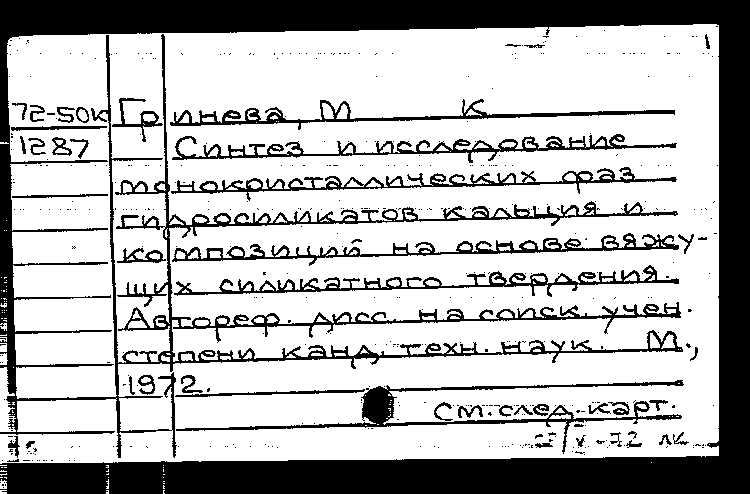 1
72-50к Гринева, М К
1287 Синтез и исследование
монокристаллических фаз
гидросиликатов кальция и
композиций на основе вяжу-
щих силикатного твердения.
Автореф. дисс. на соиск. учен.
степени канд. техн. наук. М.,
1972.
См. след. карт.
V-72 лк